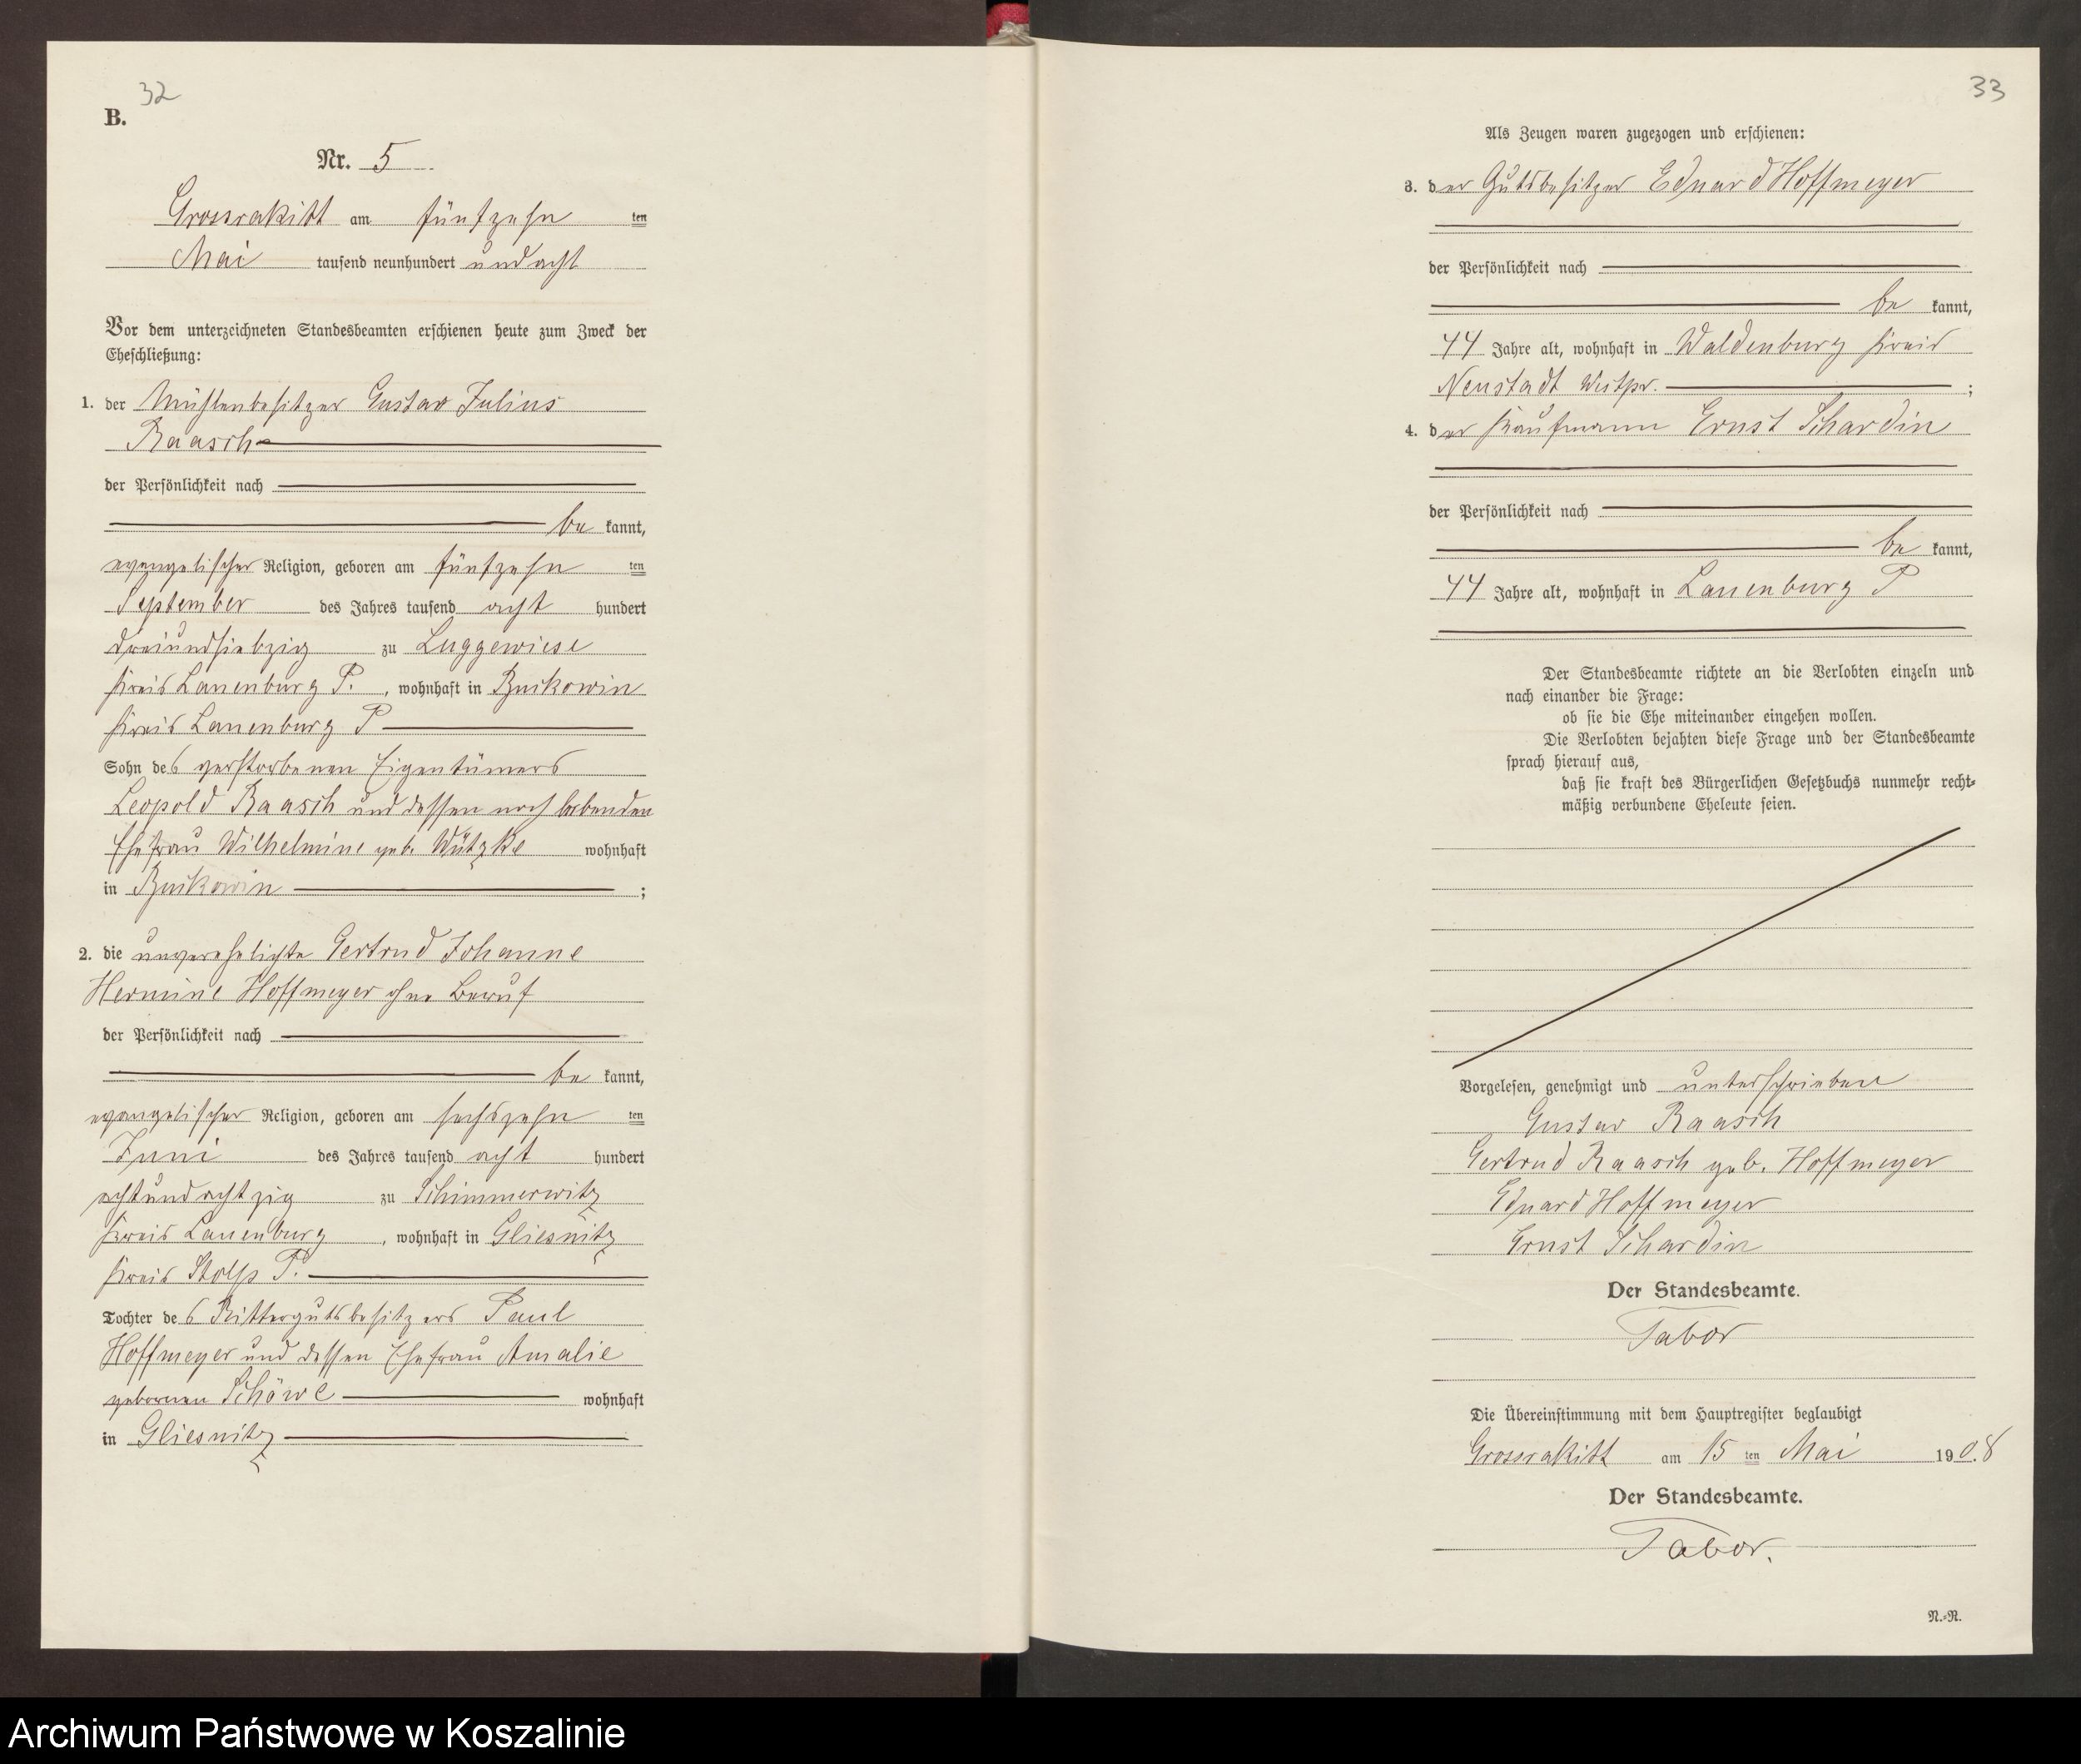 32
B.
Nr. 5
Grossrakitt am fünfzehn ten
Mai tausend neunhundert und acht
Vor dem unterzeichneten Standesbeamten erschienen heute zum Zweck der
Eheschließung:
1. der Mühlenbesitzer Gustav Julius
Raasch
der Persönlichkeit nach
be kannt,
evangelischer Religion, geboren am fünfzehn ten
September des Jahres tausend acht hundert
dreiundsiebzig zu Luggewiese
Kreis Lauenburg P. , wohnhaft in Bukowin
Kreis Lauenburg P
Sohn des verstorbenen Eigentümers
Leopold Raasch und dessen noch lebenden
Ehefrau Wilhelmine geb. Wützke wohnhaft
in Bukowin ;
2. die unverehelichte Gertrud Johanne
Hermine Hoffmeyer ohne Beruf
der Persönlichkeit nach
be kannt,
evangelischer Religion, geboren am sechszehn ten
Juni des Jahres tausend acht hundert
achtundachtzig zu Schimmerwitz
Kreis Lauenburg , wohnhaft in Gliesnitz
Kreis Stolp P.
Tochter des Rittergutsbesitzers Paul
Hoffmeyer und dessen Ehefrau Amalie
gebornen Schöwe wohnhaft
in Gliesnitz
33
Als Zeugen waren zugezogen und erschienen:
3. der Gutsbesitzer Eduard Hoffmeyer
der Persönlichkeit nach
be kannt,
44 Jahre alt, wohnhaft in Waldenburg Kreis
Neustadt Westpr. ;
4. der Kaufmann Ernst Schardin
der Persönlichkeit nach
be kannt,
44 Jahre alt, wohnhaft in Lauenburg P
Der Standesbeamte richtete an die Verlobten einzeln und
nach einander die Frage:
ob sie die Ehe miteinander eingehen wollen.
Die Verlobten bejahten diese Frage und der Standesbeamte
sprach hierauf aus,
daß sie kraft des Bürgerlichen Gesetzbuchs nunmehr recht-
mäßig verbundene Eheleute seien.
Vorgelesen, genehmigt und unterschrieben
Gustav Raasch
Gertrud Raasch geb. Hoffmeyer
Eduard Hoffmeyer
Ernst Schardin
Der Standesbeamte.
Tabor
Die Übereinstimmung mit dem Hauptregister beglaubigt
Grossrakitt am 15 ten Mai 1908
Der Standesbeamte.
Tabor.
N.-N.
Archiwum Państwowe w Koszalinie